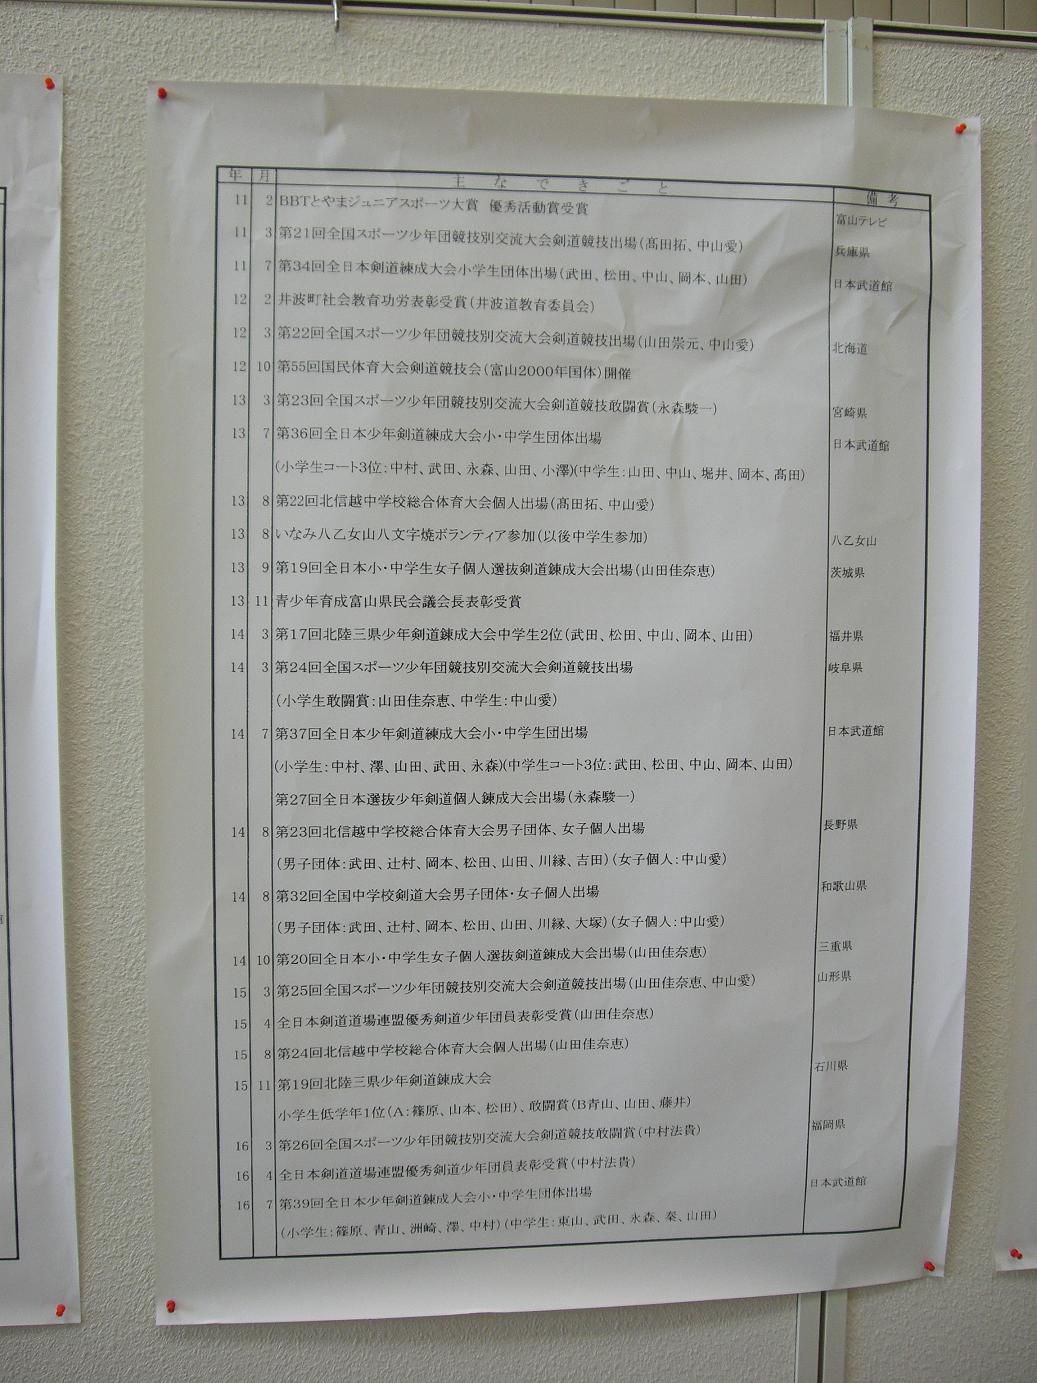 年 月 主なできごと 備考
11 2 BBTとやまジュニアスポーツ大賞 優秀活動賞受賞 富山テレビ
11 3 第21回全国スポーツ少年団競技別交流大会剣道競技出場(髙田拓、中山愛) 兵庫県
11 7 第34回全日本剣道練成大会小学生団体出場(武田、松田、中山、岡本、山田) 日本武道館
12 2 井波町社会教育功労表彰受賞(井波道教育委員会)
12 3 第22回全国スポーツ少年団競技別交流大会剣道競技出場(山田崇元、中山愛) 北海道
12 10 第55回国民体育大会剣道競技会(富山2000年国体)開催
13 3 第23回全国スポーツ少年団競技別交流大会剣道競技敢闘賞(永森駿一) 宮崎県
13 7 第36回全日本少年剣道練成大会小・中学生団体出場 日本武道館
(小学生コート3位:中村、武田、永森、山田、小澤)(中学生:山田、中山、堀井、岡本、髙田)
13 8 第22回北信越中学校総合体育大会個人出場(髙田拓、中山愛)
13 8 いなみ八乙女山八文字焼ボランティア参加(以後中学生参加) 八乙女山
13 9 第19回全日本小・中学生女子個人選抜剣道錬成大会出場(山田佳奈恵) 茨城県
13 11 青少年育成富山県民会議会長表彰受賞
14 3 第17回北陸三県少年剣道錬成大会中学生2位(武田、松田、中山、岡本、山田) 福井県
14 3 第24回全国スポーツ少年団競技別交流大会剣道競技出場 岐阜県
(小学生敢闘賞:山田佳奈恵、中学生:中山愛)
14 7 第37回全日本少年剣道練成大会小・中学生団出場 日本武道館
(小学生:中村、澤、山田、武田、永森)(中学生コート3位:武田、松田、中山、岡本、山田)
第27回全日本選抜少年剣道個人錬成大会出場(永森駿一)
14 8 第23回北信越中学校総合体育大会男子団体、女子個人出場 長野県
(男子団体:武田、辻村、岡本、松田、山田、川縁、吉田)(女子個人:中山愛)
14 8 第32回全国中学校剣道大会男子団体・女子個人出場 和歌山県
(男子団体:武田、辻村、岡本、松田、山田、川縁、大塚)(女子個人:中山愛)
14 10 第20回全日本小・中学生女子個人選抜剣道錬成大会出場(山田佳奈恵) 三重県
15 3 第25回全国スポーツ少年団競技別交流大会剣道競技出場(山田佳奈恵、中山愛) 山形県
15 4 全日本剣道道場連盟優秀剣道少年団員表彰受賞(山田佳奈恵)
15 8 第24回北信越中学校総合体育大会個人出場(山田佳奈恵)
15 11 第19回北陸三県少年剣道錬成大会 石川県
小学生低学年1位(A:篠原、山本、松田)、敢闘賞(B青山、山田、藤井)
16 3 第26回全国スポーツ少年団競技別交流大会剣道競技敢闘賞(中村法貴) 福岡県
16 4 全日本剣道道場連盟優秀剣道少年団員表彰受賞(中村法貴)
16 7 第39回全日本少年剣道錬成大会小・中学生団体出場 日本武道館
(小学生:篠原、青山、洲崎、澤、中村)(中学生:東山、武田、永森、秦、山田)